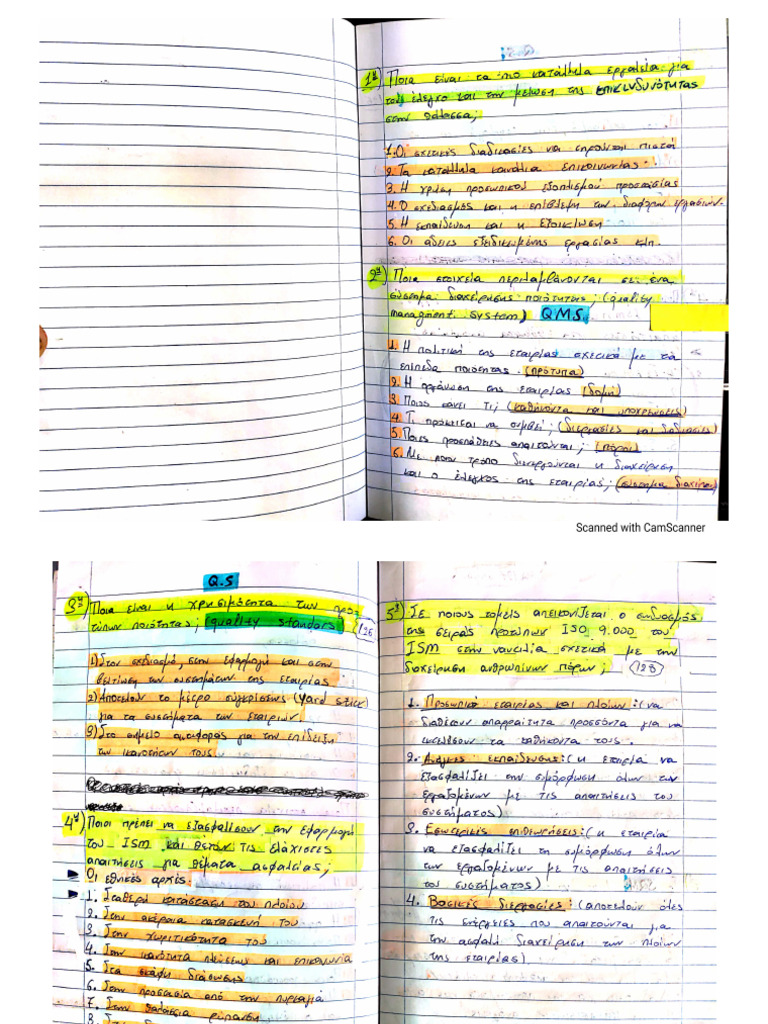 1η) Ποια είναι τα πιο κατάλληλα εργαλεία για
τον έλεγχο και την μείωση της επικινδυνότητας
στην θάλασσα;
1. Οι σχετικές διαδικασίες να τηρούνται πιστά
2. Τα κατάλληλα κανάλια επικοινωνίας.
3. Η χρήση προσωπικού εξοπλισμού προστασίας
4. Ο σχεδιασμός και η επίβλεψη των διαφόρων εργασιών.
5. Η εκπαίδευση και η εξοικίωση
6. Οι άδειες εξειδικευμένης εργασίας κλπ.
2η) Ποια στοιχεία περιλαμβάνονται σε ένα
σύστημα διαχείρησης ποιότητας; (quality
managment system) Q.M.S.
1. Η πολιτική της εταιρίας σχετικά με τα
επίπεδα ποιότητας. (πρότυπα)
2. Η οργάνωση της εταιρίας (δομή)
3. Ποιος κάνει τι; (καθήκοντα και υποχρεώσεις)
4. Τι πρόκειται να συμβεί; (διεργασίες και διαδικασίες)
5. Ποιες προσπάθειες απαιτούνται; (πόροι)
6. Με ποιον τρόπο διενεργούνται η διαχείρηση
και ο έλεγχος της εταιρίας; (σύστημα διαχείρισης)
Scanned with CamScanner
Q.S
3η) Ποια είναι η χρησιμότητα των προ-
τύπων ποιότητας; (quality standars) 126
1) Στον σχεδιασμό, στην εφαρμογή και στην
βελτίωση των συστημάτων της εταιρίας
2) Αποτελούν το μέτρο σύγκρισεως (yard stick)
για τα συστήματα των εταιριών
3) Στο σημείο αναφοράς για την επίδειξη
των ικανοτήτων τους.
4η) Ποιοι πρέπει να εξασφαλίσουν την εφαρμογή
του ISM και θέτουν τις ελάχιστες
απαιτήσεις για θέματα ασφαλείας;
Οι εθνικές αρχές.
1. Σταθερή κατάσταση του πλοίου
2. Στην ακέραια κατασκευή του
3. Στην χωριτικότητα του
4. Στην ικανότητα πλεύσεως και επικοινωνία
5. Στα σκάφη διάσωσης
6. Στην προστασία από την πυρκαγιά
7. Στην θαλάσσια ρύπανση
8. Στους
5η) Σε ποιους τομείς απεικονίζεται ο συνδυασμός
της σειράς προτύπων ISO 9.000 του
ISM στην ναυτιλία σχετικά με την
διαχείρηση ανθρωπίνων πόρων; 128
1. Προσωπικό εταιρίας και πλοίων: (να
διαθέτουν απαραίτητα προσόντα για να
εκτελέσουν τα καθήκοντα τους.
2. Ανάγκες εκπαίδευσης: (η εταιρία να
εξασφαλίζει την συμόρφωση όλων των
εργαζομένων με τις απαιτήσεις του
συστήματος)
3. Εσωτερικές επιθεωρήσεις: (η εταιρία
να εξασφαλίζει τη συμόρφωση όλων
των εργαζομένων με τις απαιτήσεις
του συστήματος)
4. Βασικές διεργασίες: (αποτελούν όλες
τις ενέργειες που απαιτούνται για
την ασφαλή διαχείρηση των πλοίων
της εταιρίας)